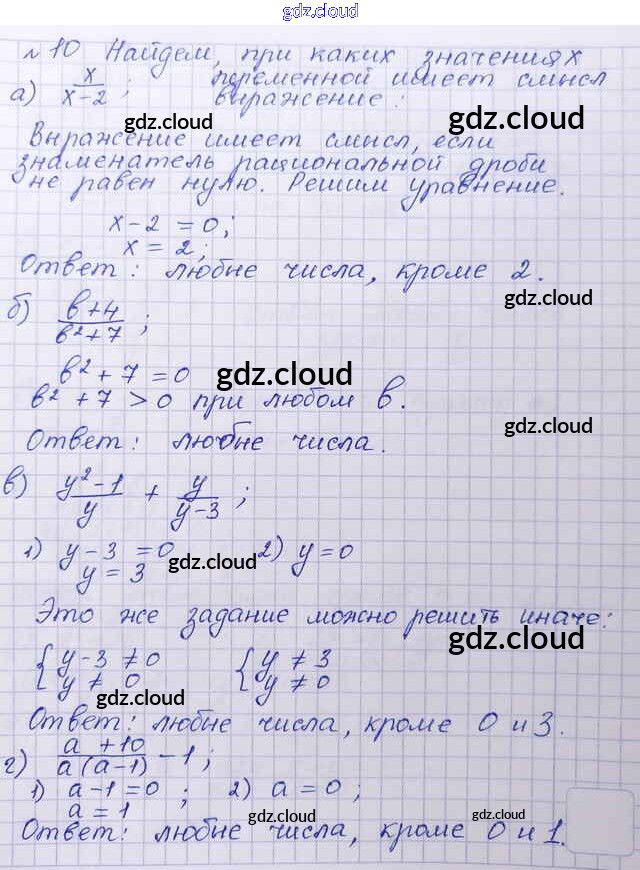 gdz.cloud
№ 10 Найдем, при каких значениях
а) x/(x-2) ; переменной имеет смысл
выражение:
gdz.cloud
gdz.cloud
Выражение имеет смысл, если
знаменатель рациональной дроби
не равен нулю. Решим уравнение.
gdz.cloud
x-2 = 0;
x = 2;
gdz.cloud
Ответ: любые числа, кроме 2.
gdz.cloud
б) (b+4)/(b²+7) ;
b² + 7 = 0 gdz.cloud
b² + 7 > 0 при любом b.
gdz.cloud
Ответ: любые числа.
в) (y²-1)/y + y/(y-3) ;
gdz.cloud
1) y-3 = 0 gdz.cloud 2) y = 0
y = 3
Это же задание можно решить иначе:
gdz.cloud
{ y-3 ≠ 0 { y ≠ 3
y ≠ 0 y ≠ 0
gdz.cloud
Ответ: любые числа, кроме 0 и 3.
г) (a+10)/(a(a-1)) - 1 ;
gdz.cloud
1) a-1 = 0 ; 2) a = 0 ;
a = 1
gdz.cloud gdz.cloud
Ответ: любые числа, кроме 0 и 1.